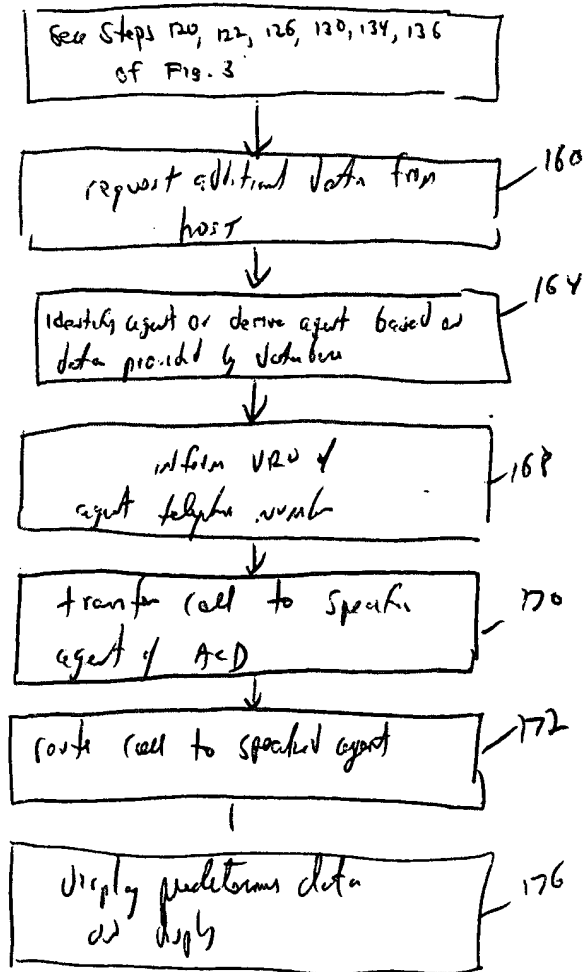 See Steps 120, 122, 126, 130, 134, 136
of Fig. 3
request additional data from
host
160
Identify agent or derive agent based on
data provided by database
164
inform VRU of
agent telephone number
168
transfer call to specific
agent of ACD
170
route call to specified agent
172
display predetermined data
on display
176